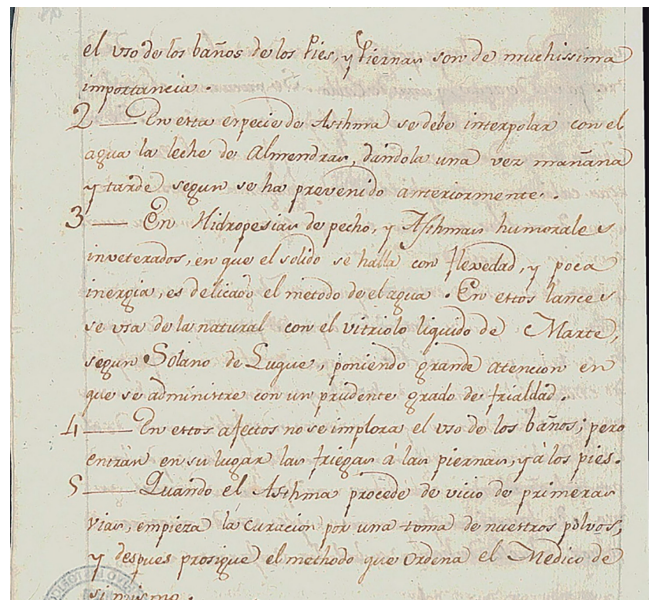 el uso de los baños de los Pies, y Piernas son de muchissima
importancia.
2 — En esta especie de Asthma se debe interpolar con el
agua la leche de Almendras, dandola una vez mañana
y tarde segun se ha prevenido anteriormente.
3 — En Hidropesias de pecho, y Asthmas humorales
inveterados, en que el solido se halla con flexedad, y poca
inergia, es delicado el metodo de el agua. En estos lances
se usa de la natural con el vitriolo liquido de Marte,
segun Solano de Luque, poniendo grande atencion en
que se administre con un prudente grado de frialdad.
4 — En estos afectos no se implora el uso de los baños; pero
entran en su lugar las friegas á las piernas, y á los pies.
5 — Quando el Asthma procede de vicio de primeras
vias, empieza la curacion por una toma de nuestros polvos,
y despues prosigue el methodo que ordena el Medico de
si mismo.